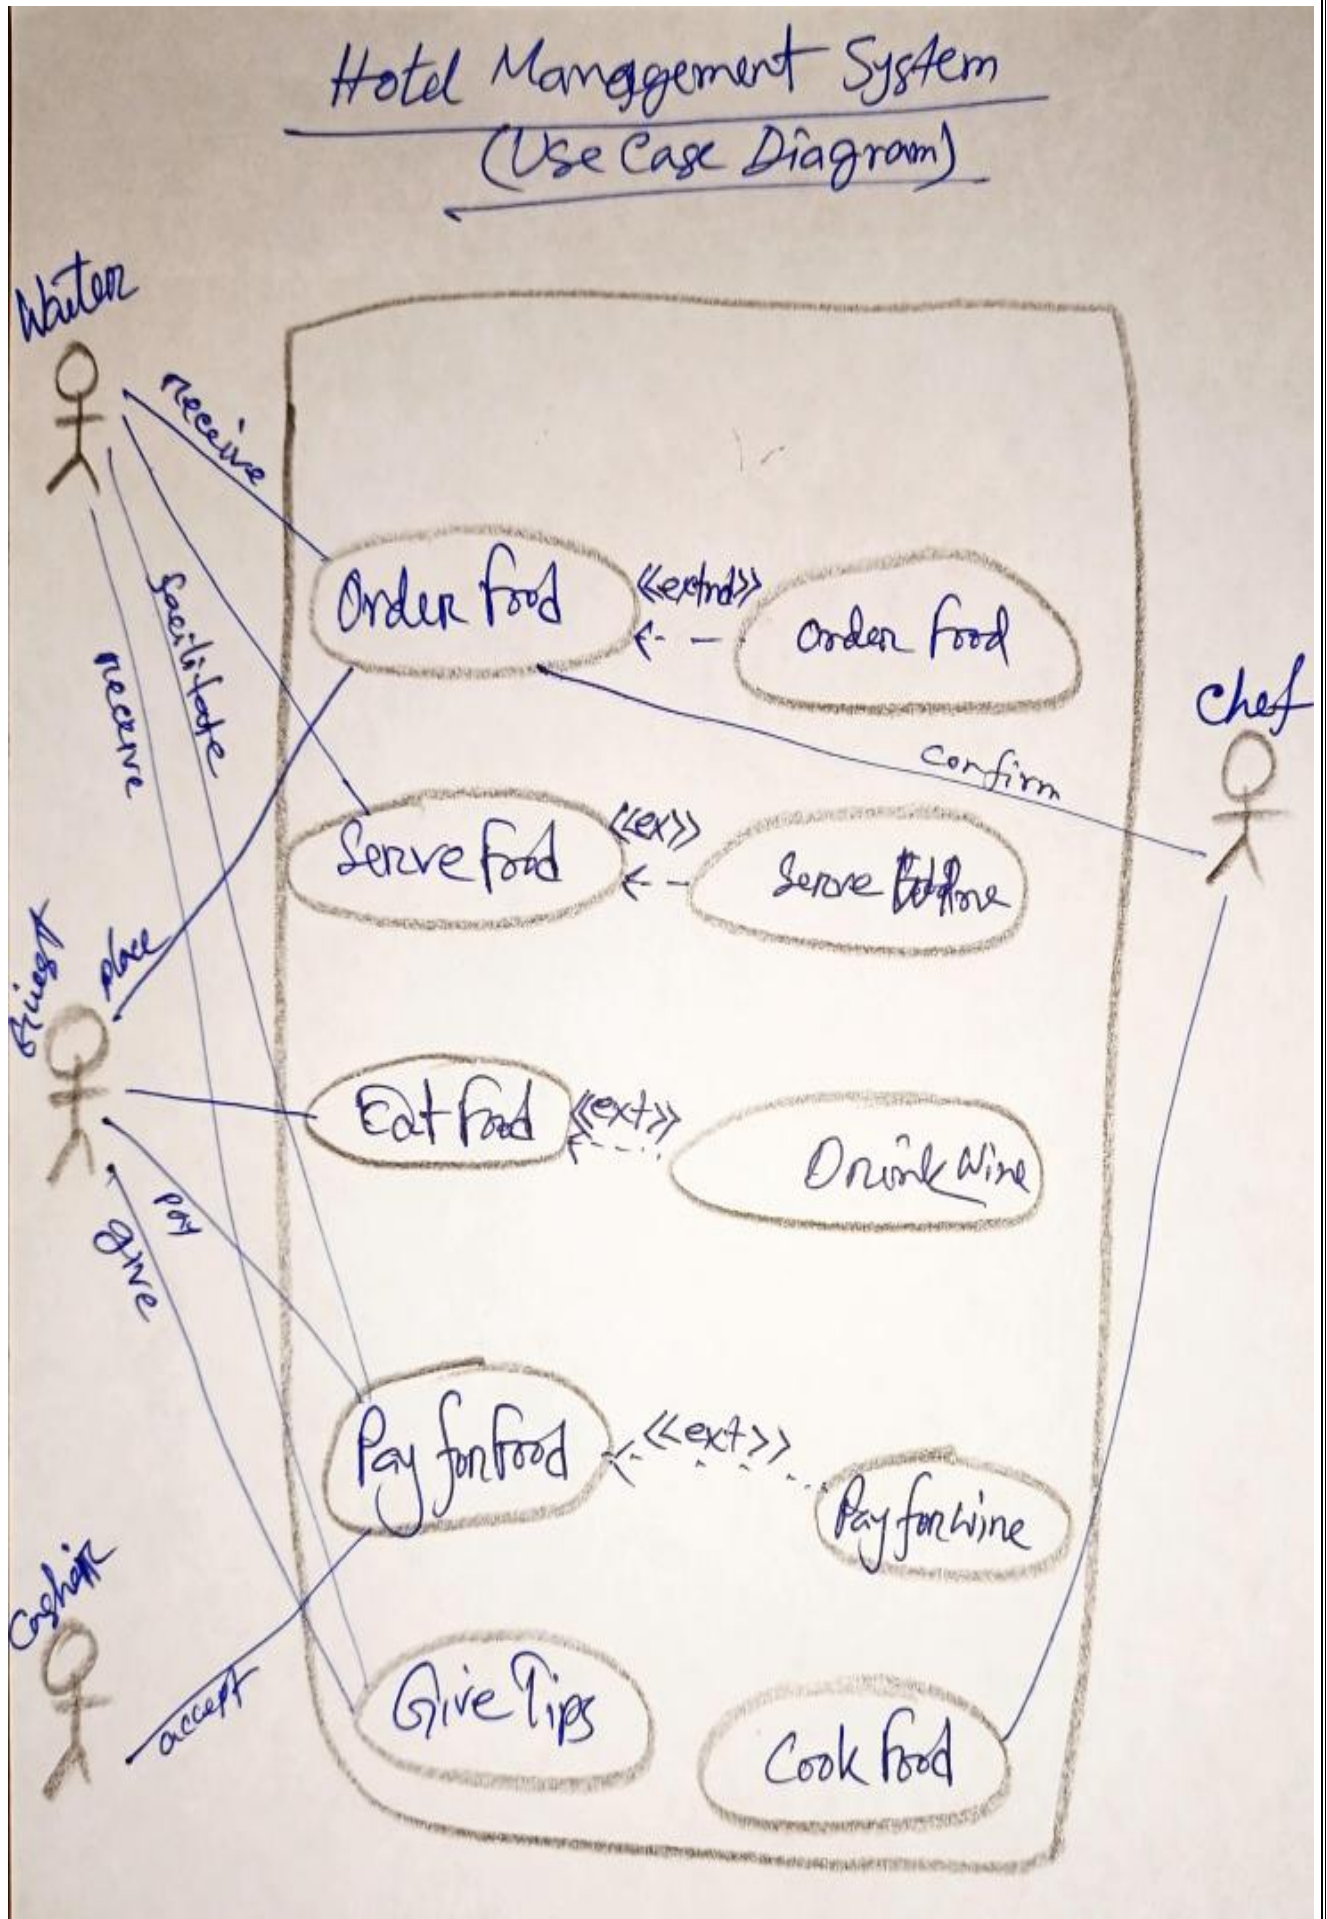 Hotel Management System
(Use Case Diagram)
Waiter
receive
facilitate
receive
Order Food
<<extnd>>
Order Food
Chef
Confirm
Serve Food
<<ex>>
Serve
Guest
place
Eat Food
<<ext>>
Drink Wine
pay
give
Pay for Food
<<ext>>
Pay for wine
Cashier
accept
Give Tips
Cook Food